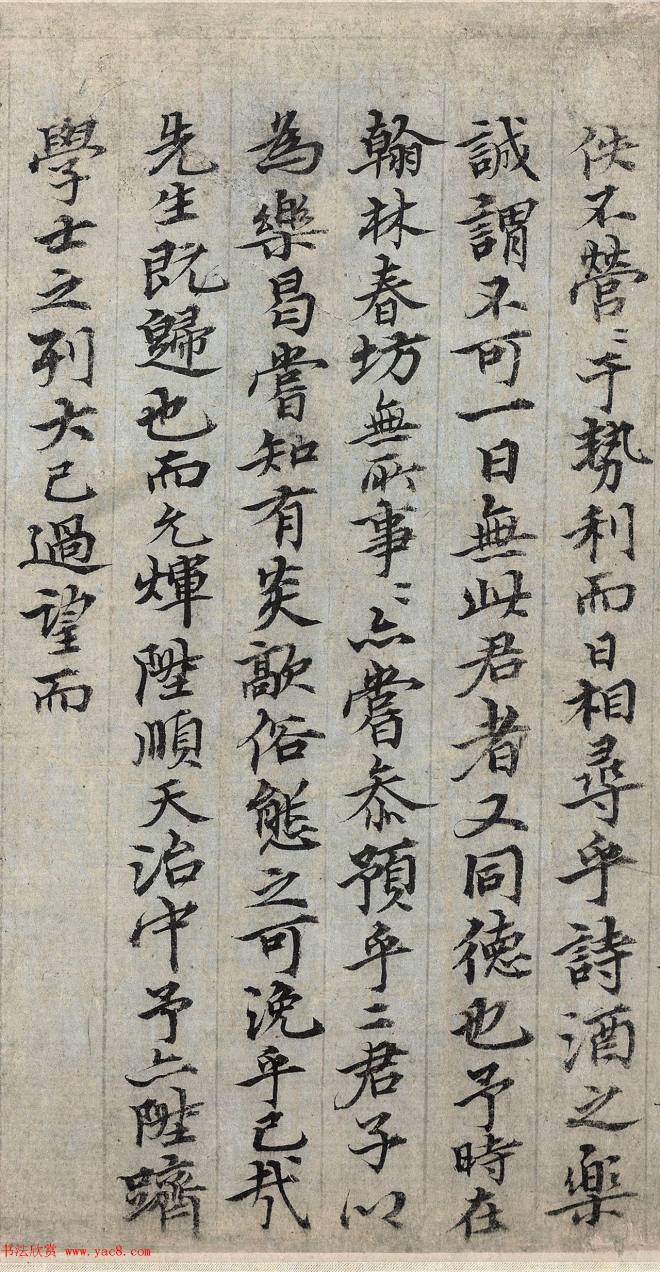 佚不營〻于勢利而日相尋乎詩酒之樂
誠謂不可一日無此君者又同德也予時在
翰林春坊無所事〻亦嘗忝預乎二君子以
為樂曷嘗知有炎歊俗態之可浼乎已哉
先生既歸也而允煇陞順天治中予亦陞躋
學士之列大已過望而
书法欣赏 www.yac8.com